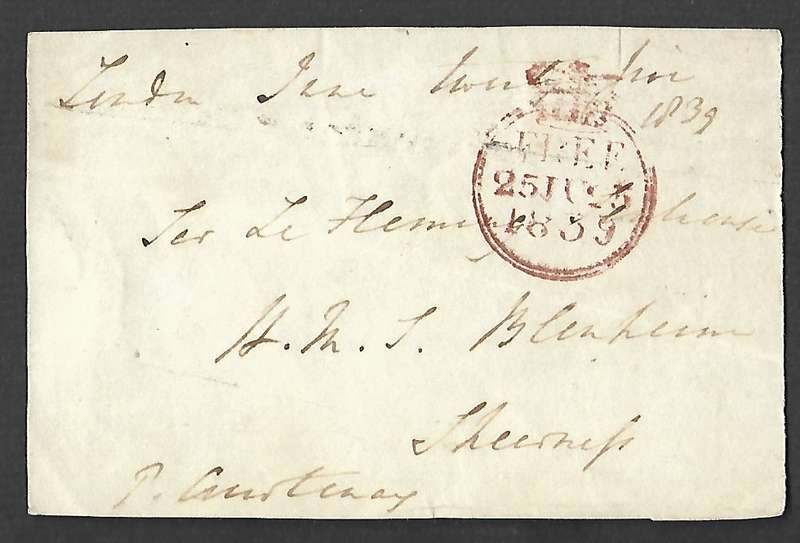 London June twenty five
1839
FREE
25 JU 25
1839
Sir Le Fleming Senhouse
H. M. S. Blenheim
Sheerness
P. Courtenay